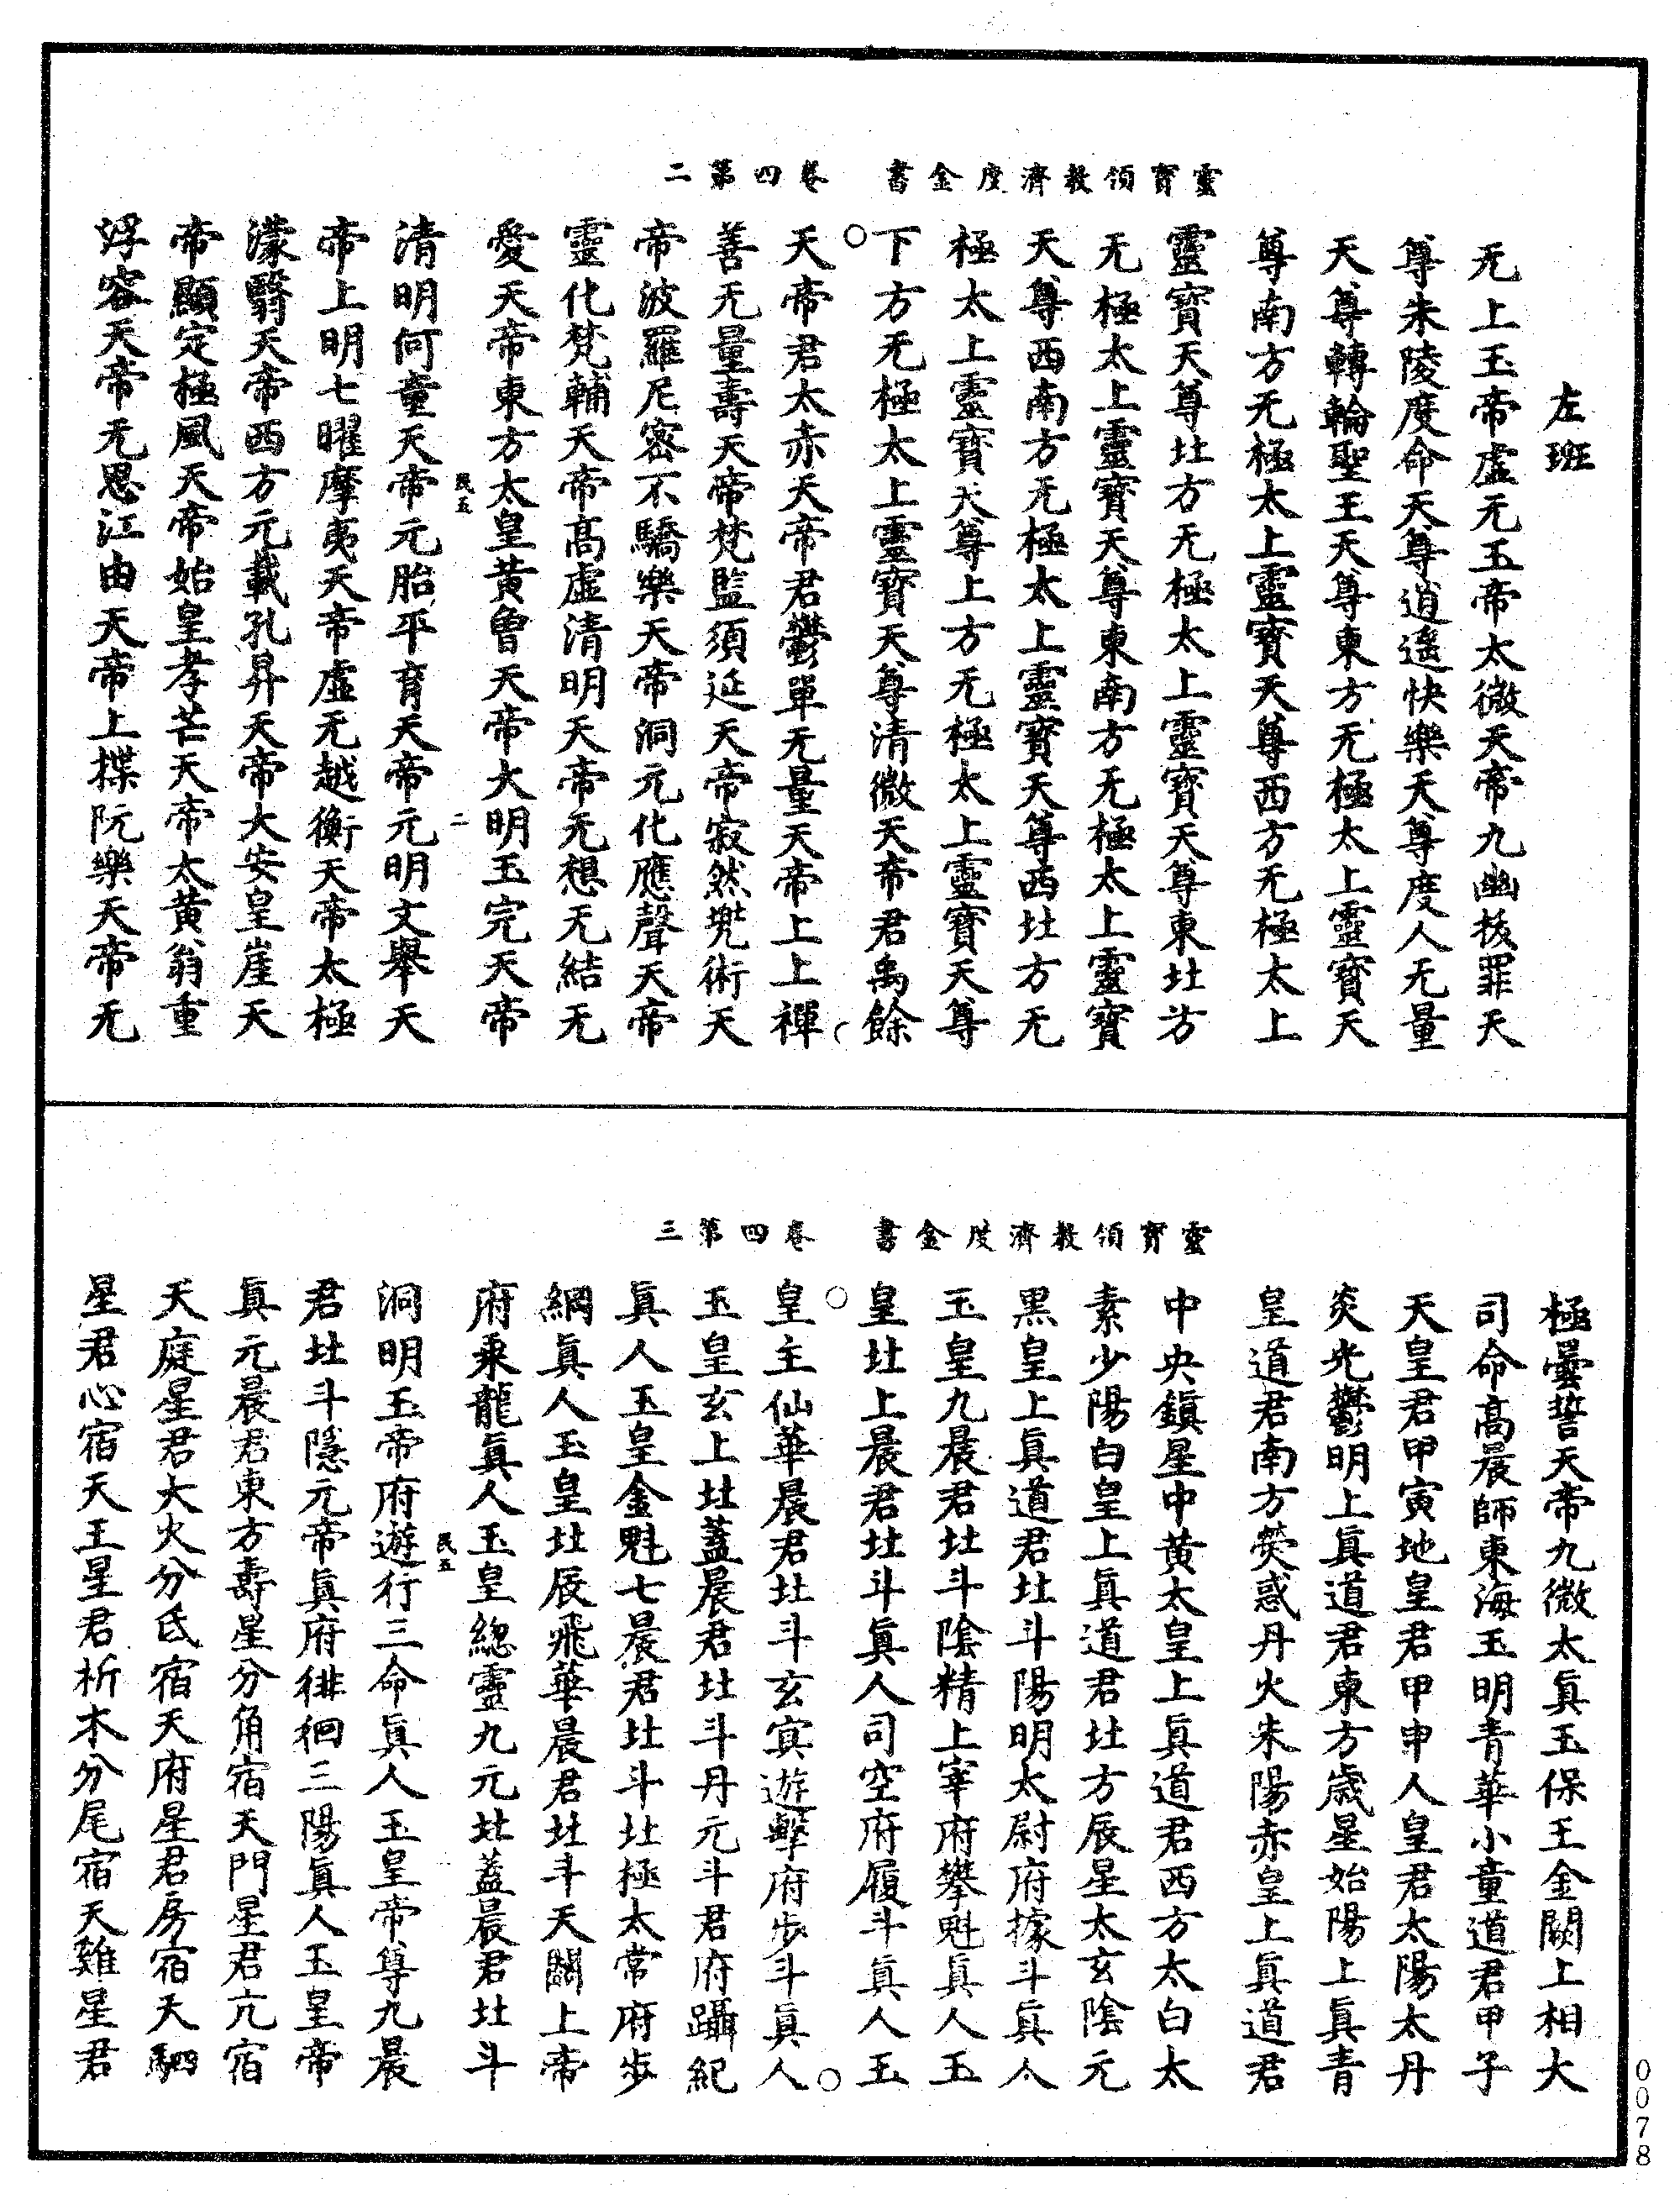 靈寶領教濟度金書　卷四第二
左班
无上玉帝虛无玉帝太微天帝九幽拔罪天
尊朱陵度命天尊逍遙快樂天尊度人无量
天尊轉輪聖王天尊東方无極太上靈寶天
尊南方无極太上靈寶天尊西方无極太上
靈寶天尊北方无極太上靈寶天尊東北方
无極太上靈寶天尊東南方无極太上靈寶
天尊西南方无極太上靈寶天尊西北方无
極太上靈寶天尊上方无極太上靈寶天尊
下方无極太上靈寶天尊清微天帝君禹餘
天帝君太赤天帝君鬱單无量天帝上上禪
善无量壽天帝梵監須延天帝寂然兠術天
帝波羅尼密不驕樂天帝洞元化應聲天帝
靈化梵輔天帝高虛清明天帝无想无結无
愛天帝東方太皇黃曾天帝大明玉完天帝
民五　二
清明何童天帝元胎平育天帝元明文舉天
帝上明七曜摩夷天帝虛无越衡天帝太極
濛翳天帝西方元載孔昇天帝大安皇崖天
帝顯定極風天帝始皇孝芒天帝太黃翁重
浮容天帝无思江由天帝上揲阮樂天帝无
靈寶領教濟度金書　卷四第三
極曇誓天帝九微太眞玉保王金闕上相大
司命高晨師東海玉明青華小童道君甲子
天皇君甲寅地皇君甲申人皇君太陽太丹
炎光鬱明上眞道君東方歲星始陽上眞青
皇道君南方熒惑丹火朱陽赤皇上眞道君
中央鎭星中黃太皇上眞道君西方太白太
素少陽白皇上眞道君北方辰星太玄陰元
黑皇上眞道君北斗陽明太尉府據斗眞人
玉皇九晨君北斗陰精上宰府攀魁眞人玉
皇北上晨君北斗眞人司空府履斗眞人玉
皇主仙華晨君北斗玄冥遊擊府步斗眞人
玉皇玄上北蓋晨君北斗丹元斗君府躡紀
眞人玉皇金魁七晨君北斗北極太常府步
綱眞人玉皇北辰飛華晨君北斗天關上帝
府乘龍眞人玉皇緫靈九元北蓋晨君北斗
民五
洞明玉帝府遊行三命眞人玉皇帝尊九晨
君北斗隱元帝眞府徘徊三陽眞人玉皇帝
眞元晨君東方壽星分角宿天門星君亢宿
天庭星君大火分氐宿天府星君房宿天駟
星君心宿天王星君析木分尾宿天雞星君
0078